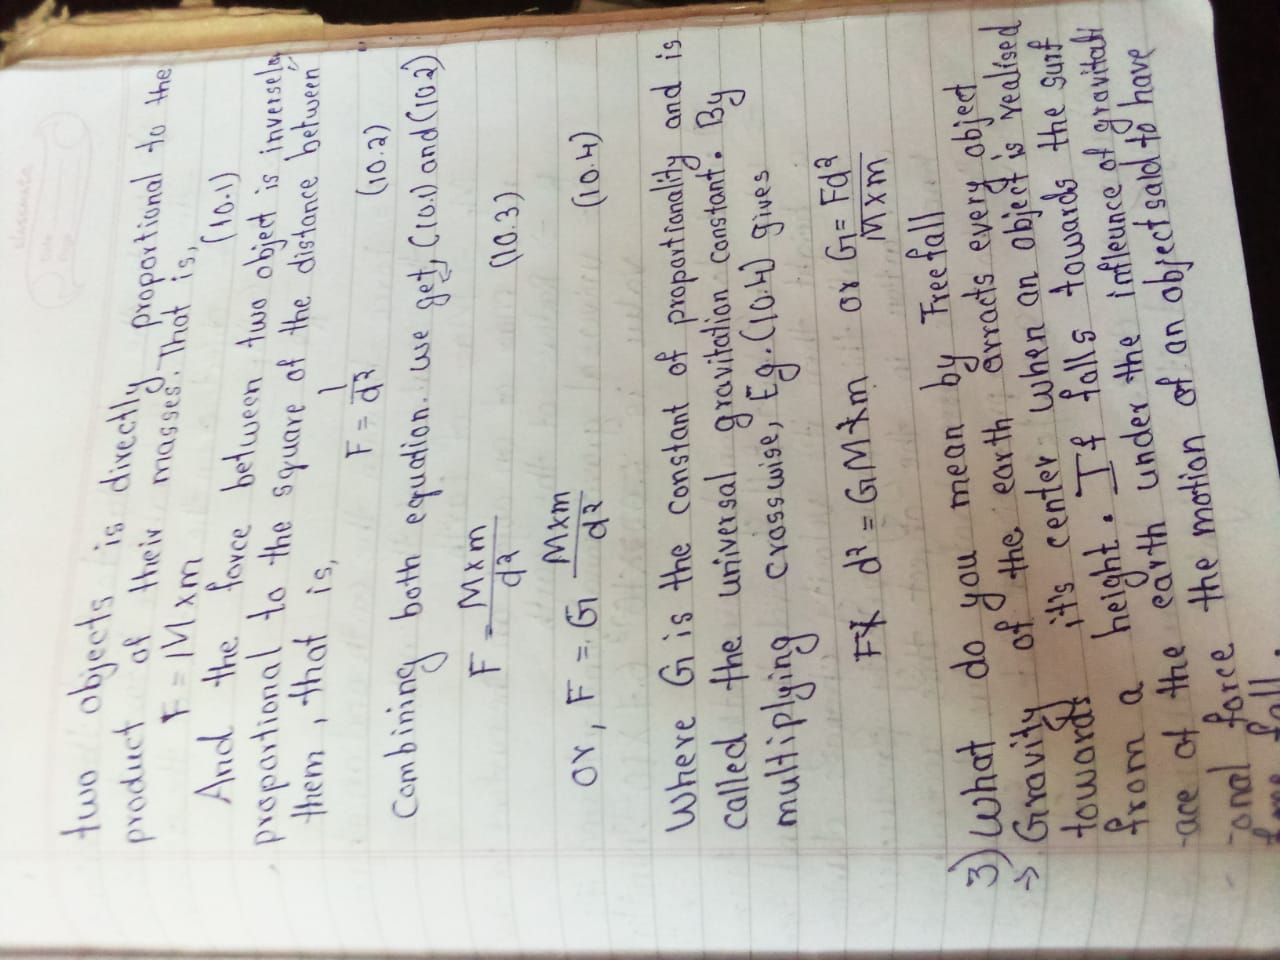 classmate
Date
Page
two objects is directly proportional to the
product of their masses. That is,
F = M x m (10.1)
And the force between two object is inversely
proportional to the square of the distance between
them, that is,
F = 1/d² (10.2)
Combining both equation. we get, (10.1) and (10.2)
F = M x m / d² (10.3)
or, F = G M x m / d² (10.4)
Where G is the constant of proportionality and is
called the universal gravitation constant. By
multiplying crosswise, Eg. (10.4) gives
F x d² = G M x m or G = Fd² / M x m
3) What do you mean by Free fall
→ Gravity of the earth arracts every object
towards it's center when an object is realised
from a height. If falls towards the surf
-ace of the earth under the infleunce of gravitati
-onal force the motion of an object said to have
fall.